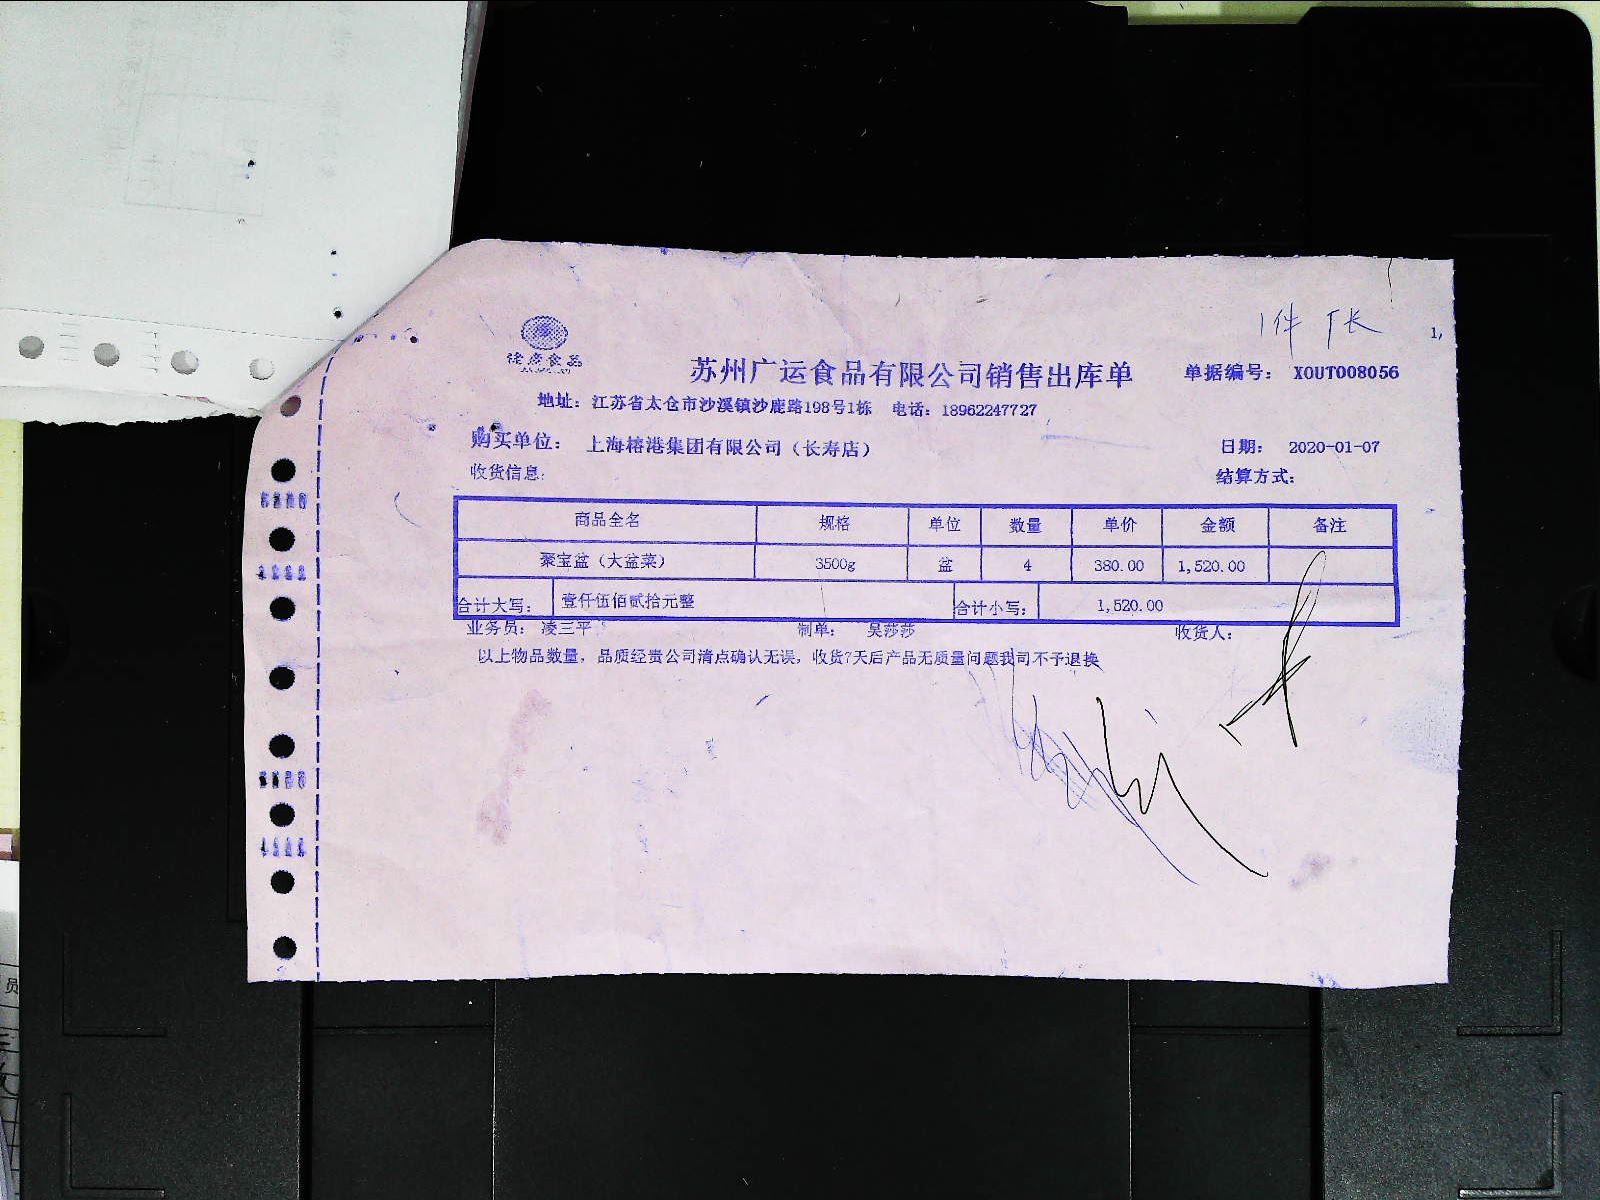 1件
苏州广运食品有限公司销售出库单 单据编号： XOUT008056
地址：江苏省太仓市沙溪镇沙鹿路198号1栋 电话：18962247727
购买单位： 上海榕港集团有限公司（长寿店） 日期： 2020-01-07
收货信息： 结算方式：
商品全名 规格 单位 数量 单价 金额 备注
聚宝盆（大盆菜） 3500g 盆 4 380.00 1,520.00
合计大写： 壹仟伍佰贰拾元整 合计小写： 1,520.00
业务员： 凌三平 制单： 吴莎莎 收货人：
以上物品数量，品质经贵公司清点确认无误，收货7天后产品无质量问题我司不予退换